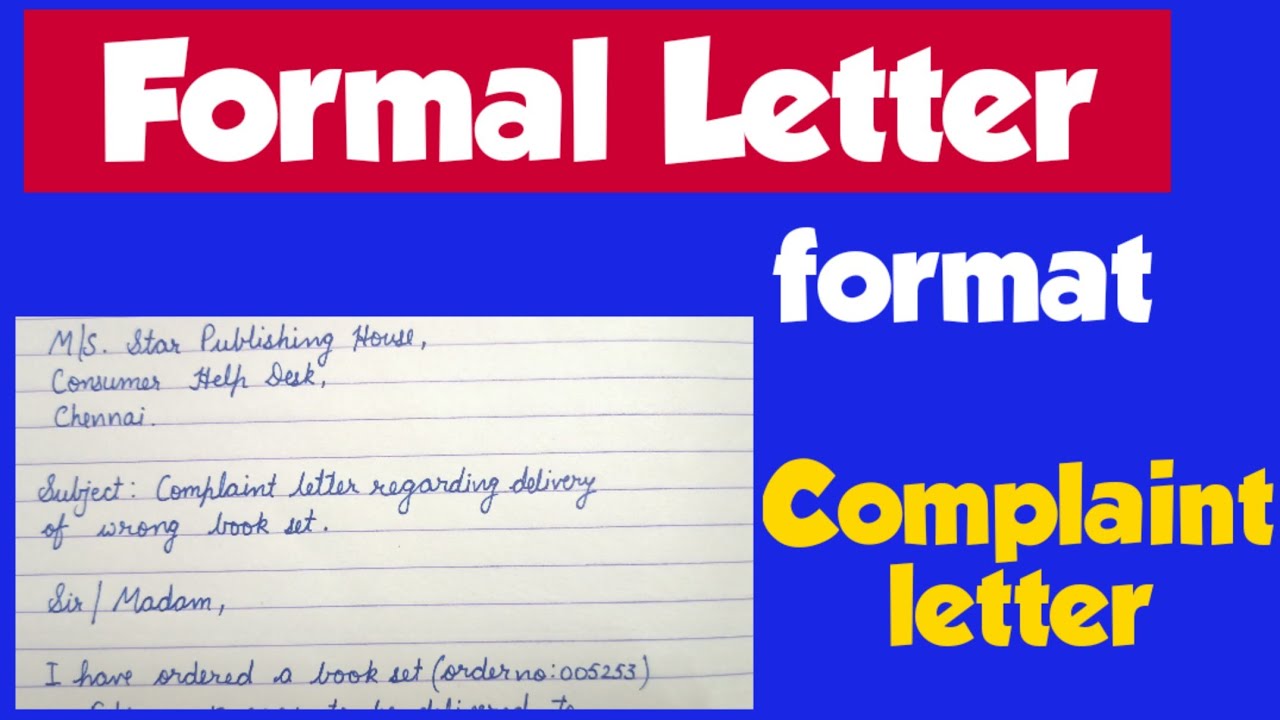 Formal Letter
format
M/S. Star Publishing House,
Consumer Help Desk,
Chennai.
Subject: Complaint letter regarding delivery
of wrong book set.
Sir/Madam,
I have ordered a book set (order no: 005253)
to be delivered to
Complaint
letter